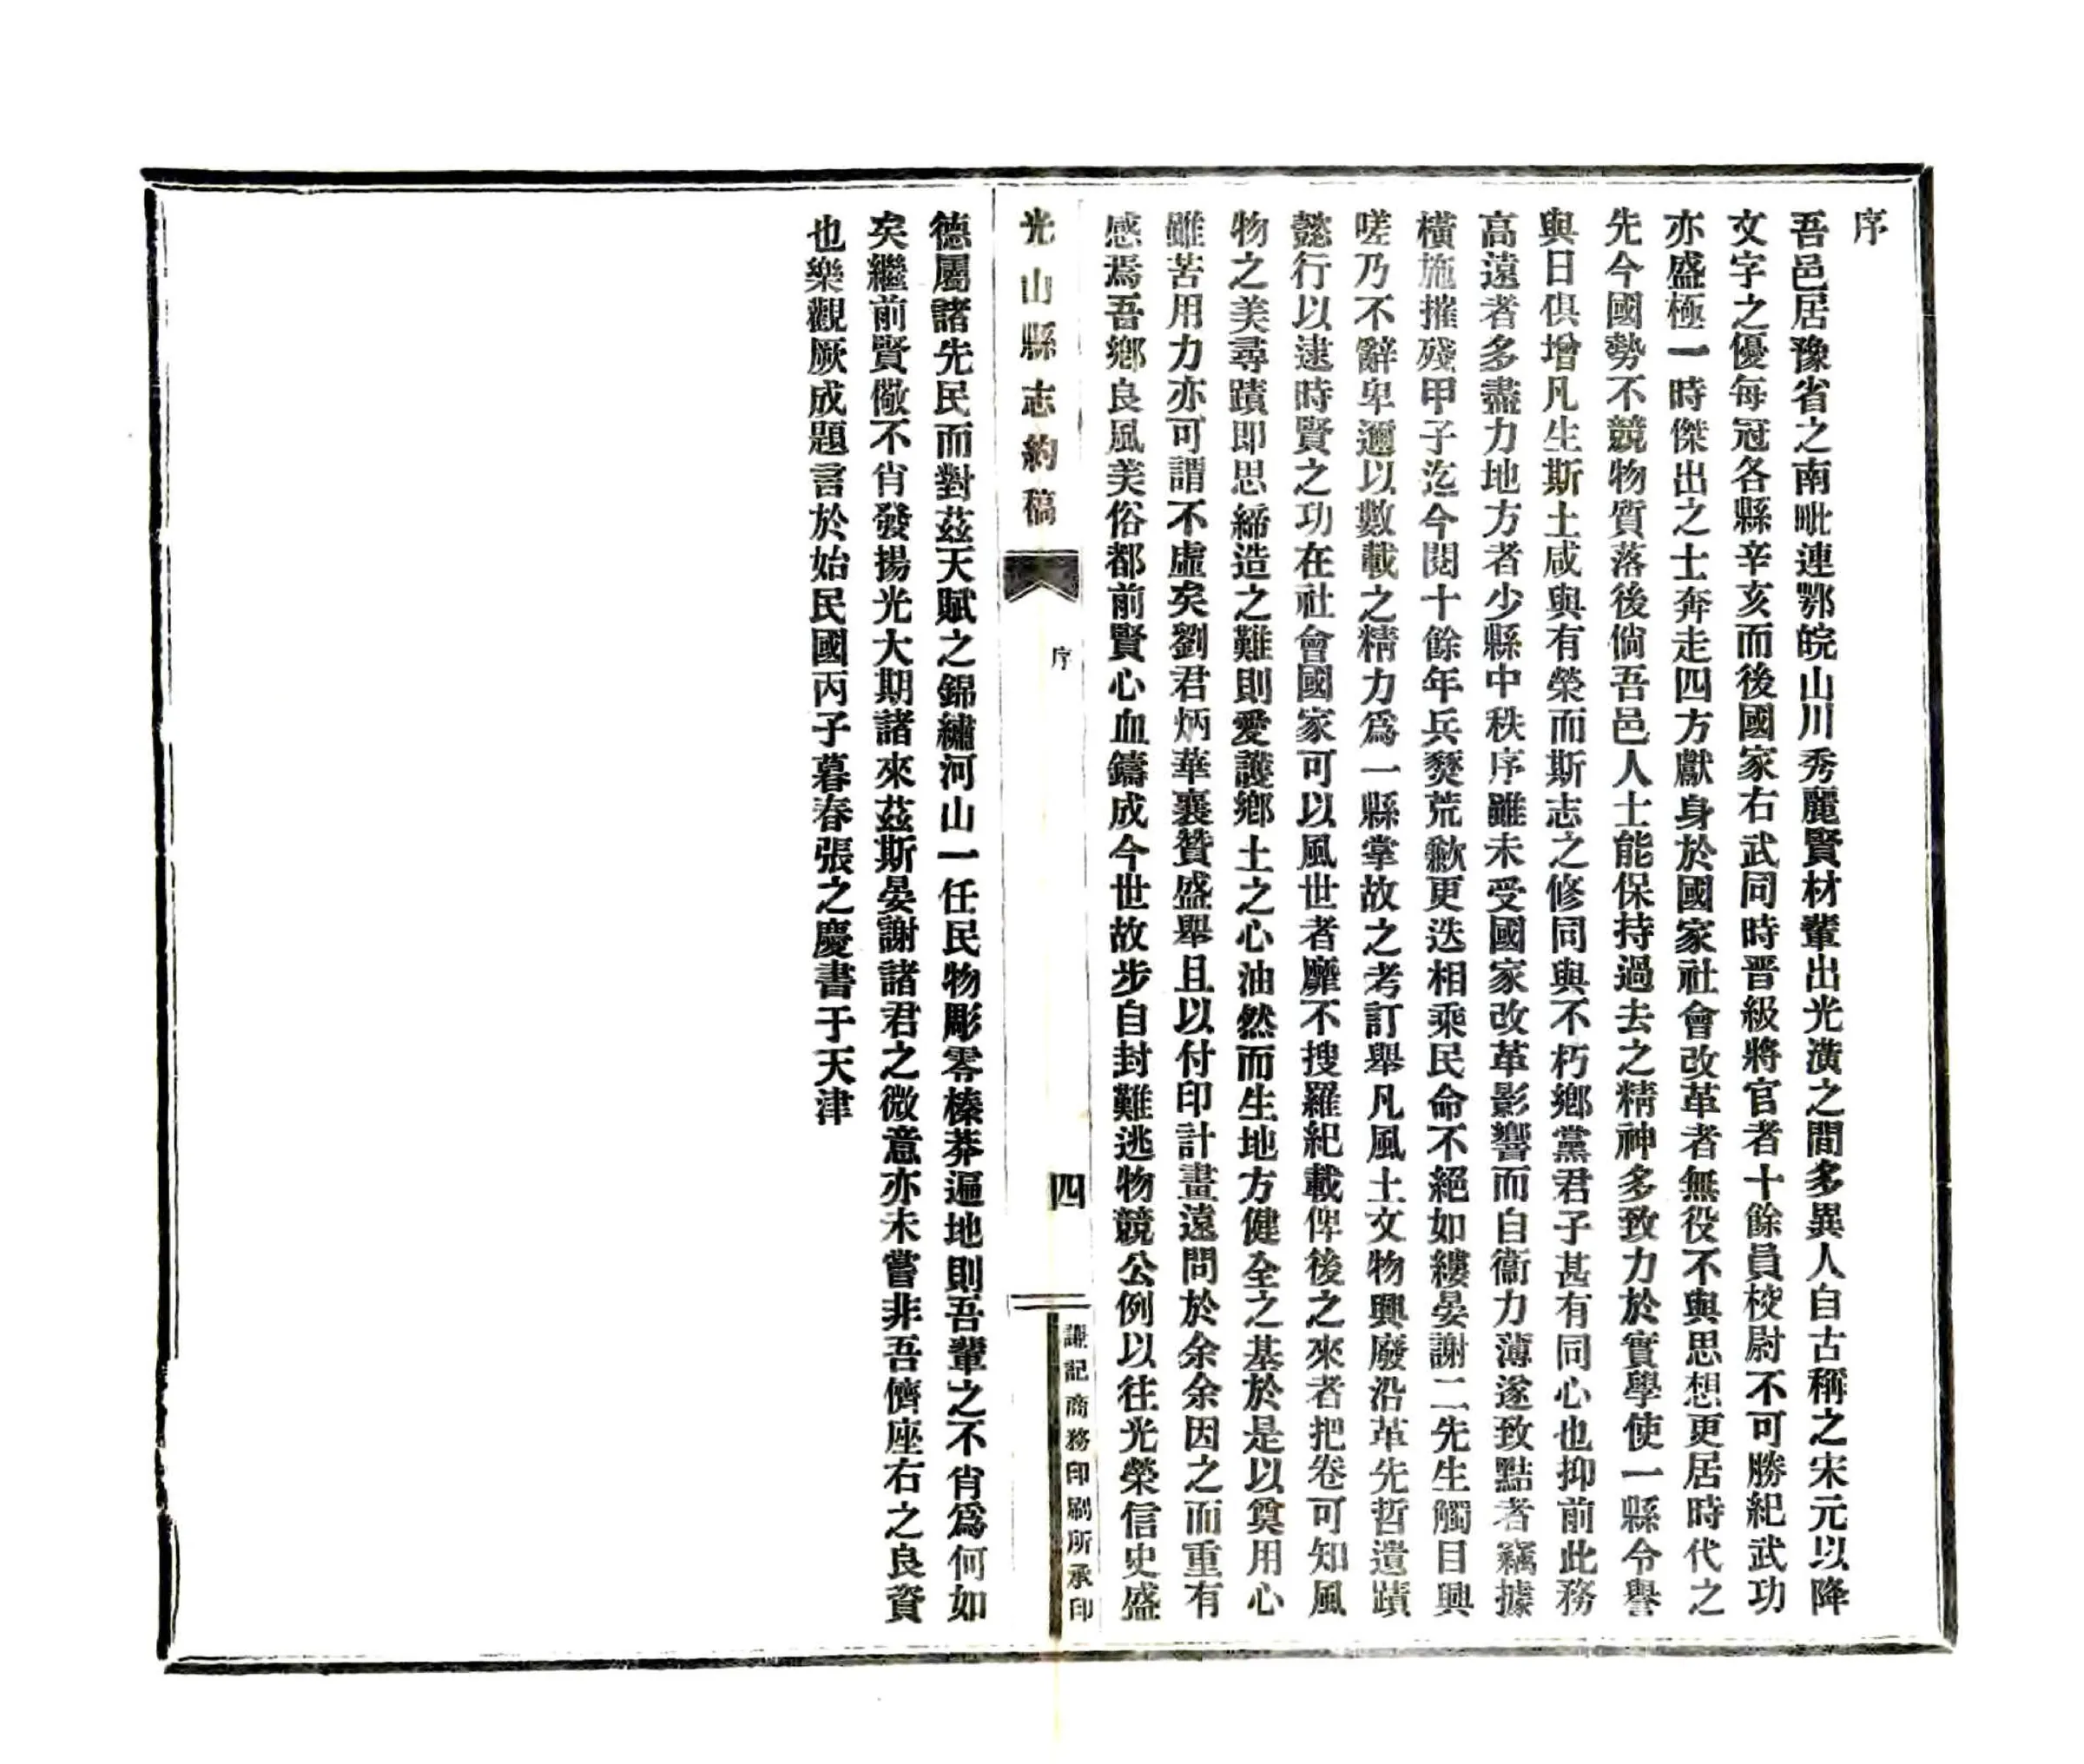 序
吾邑居豫省之南毗連鄂皖山川秀麗賢材輩出光潢之間多異人自古稱之宋元以降
文字之優每冠各縣辛亥而後國家右武同時晋級將官者十餘員校尉不可勝紀武功
亦盛極一時傑出之士奔走四方獻身於國家社會改革者無役不與思想更居時代之
先今國勢不競物質落後倘吾邑人士能保持過去之精神多致力於實學使一縣令譽
與日俱增凡生斯土咸與有榮而斯志之修同與不朽鄉黨君子甚有同心也抑前此務
高遠者多盡力地方者少縣中秩序雖未受國家改革影響而自衞力薄遂致黠者竊據
橫施摧殘甲子迄今閱十餘年兵燹荒歉更迭相乘民命不絕如縷晏謝二先生觸目興
嗟乃不辭卑邇以數載之精力爲一縣掌故之考訂舉凡風土文物興廢沿革先哲遺蹟
懿行以逮時賢之功在社會國家可以風世者靡不搜羅紀載俾後之來者把卷可知風
物之美尋蹟即思締造之難則愛護鄉土之心油然而生地方健全之基於是以奠用心
雖苦用力亦可謂不虛矣劉君炳華襄贊盛舉且以付印計畫遠問於余余因之而重有
感焉吾鄉良風美俗都前賢心血鑄成今世故步自封難逃物競公例以往光榮信史盛
光山縣志約稿
序
四
謙記商務印刷所承印
德屬諸先民而對茲天賦之錦繡河山一任民物彫零榛莽遍地則吾輩之不肖爲何如
矣繼前賢儆不肖發揚光大期諸來茲斯晏謝諸君之微意亦未嘗非吾儕座右之良資
也樂觀厥成題言於始民國丙子暮春張之慶書于天津